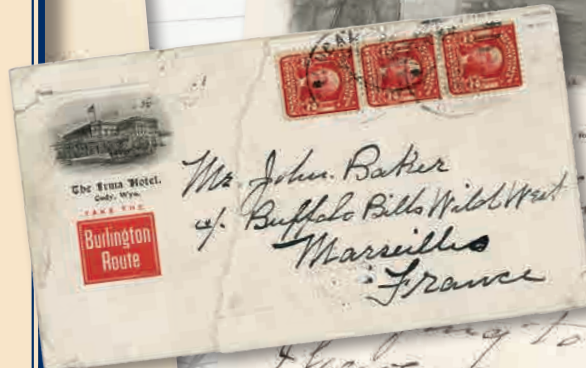 The Irma Hotel.
Cody, Wyo.
TAKE THE
Burlington
Route
Mr. John. Baker
c/. Buffalo Bills Wild West
Marseilles
France
to